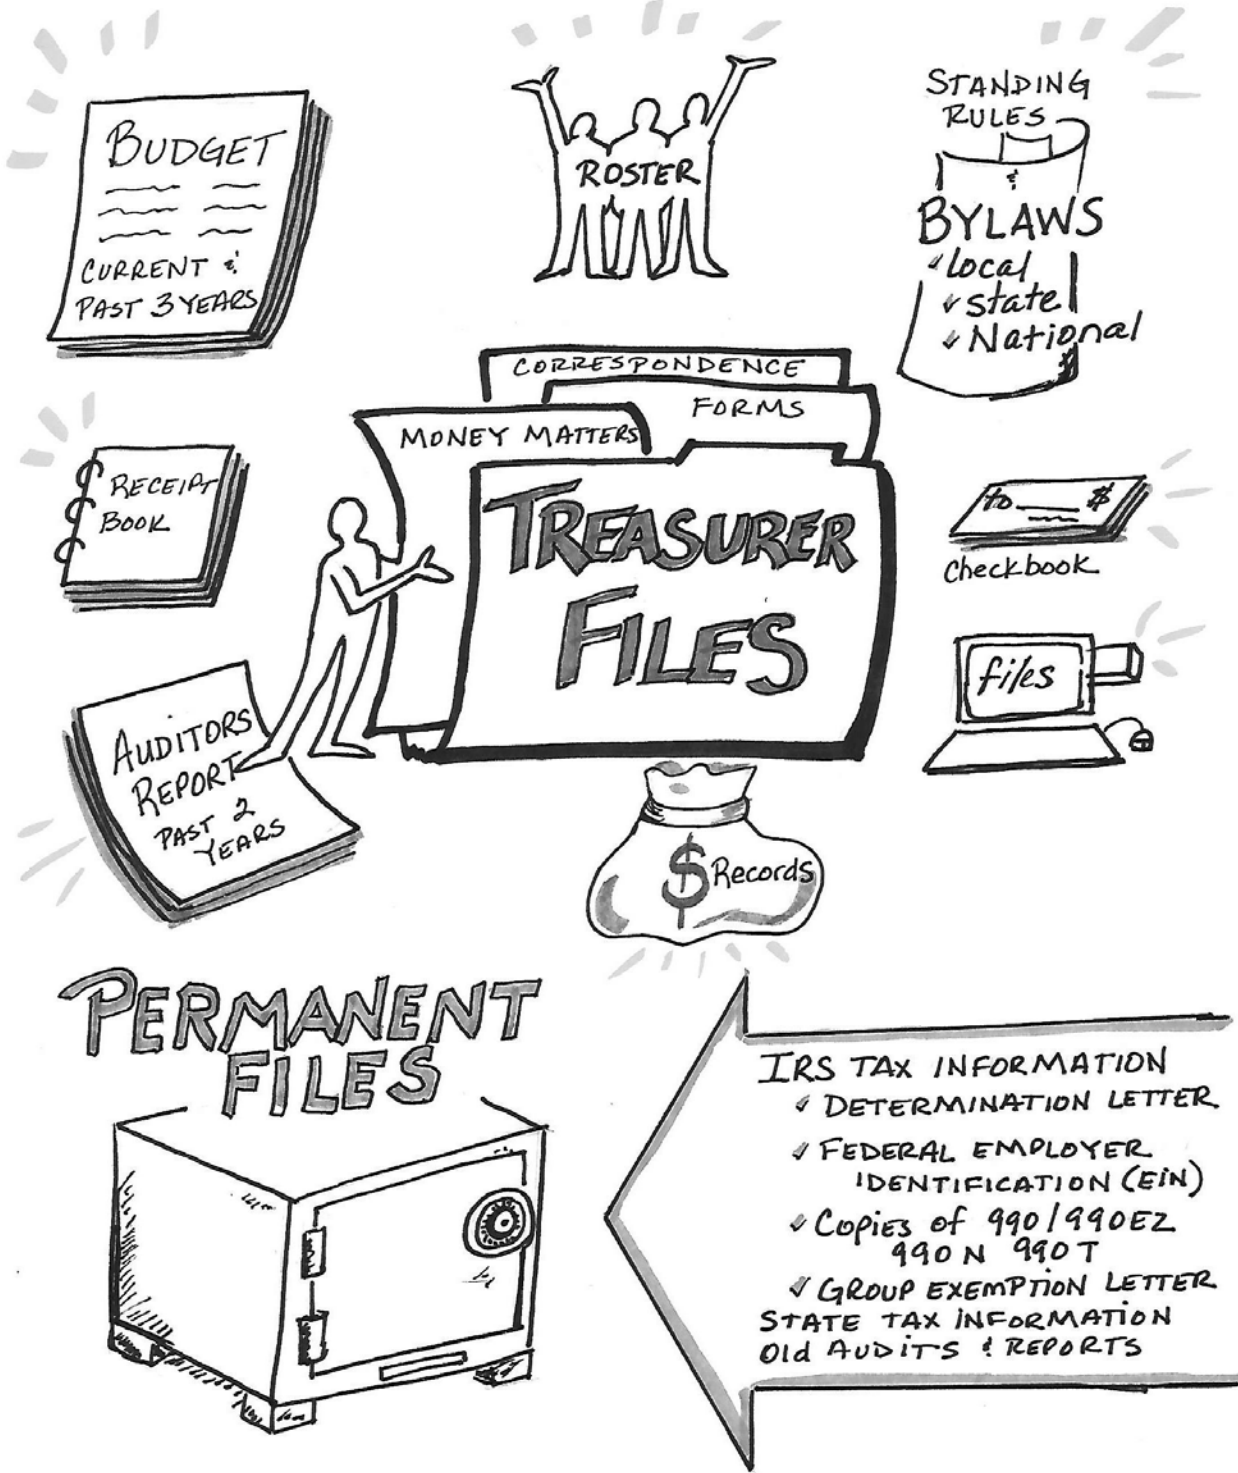 BUDGET
CURRENT &
PAST 3 YEARS
ROSTER
STANDING
RULES
&
BYLAWS
Local
State
National
CORRESPONDENCE
FORMS
MONEY MATTERS
TREASURER
FILES
RECEIPT
BOOK
to $
checkbook
files
AUDITORS
REPORT
PAST 2
YEARS
$ Records
PERMANENT
FILES
IRS TAX INFORMATION
DETERMINATION LETTER
FEDERAL EMPLOYER
IDENTIFICATION (EIN)
Copies of 990/990EZ
990N 990T
GROUP EXEMPTION LETTER
STATE TAX INFORMATION
Old AUDITS & REPORTS